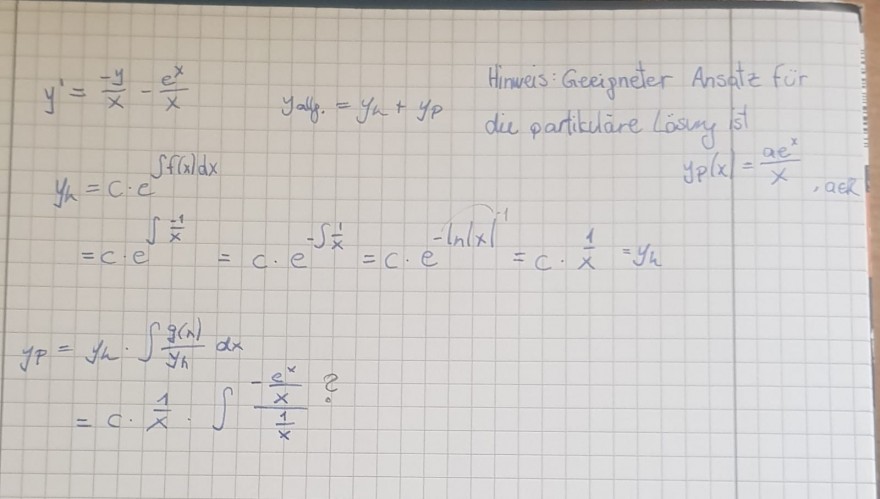 y' = -y/x - e^x/x
y allg. = yh + yp
Hinweis: Geeigneter Ansatz für
die partikuläre Lösung ist
yp(x) = ae^x/x , a∈R
yh = c · e^∫f(x)dx
= c · e^∫-1/x = c · e^-∫1/x = c · e^-ln|x|^-1 = c · 1/x = yh
yp = yh · ∫ g(x)/yh dx
= c · 1/x · ∫ (-e^x/x)/(1/x) ?